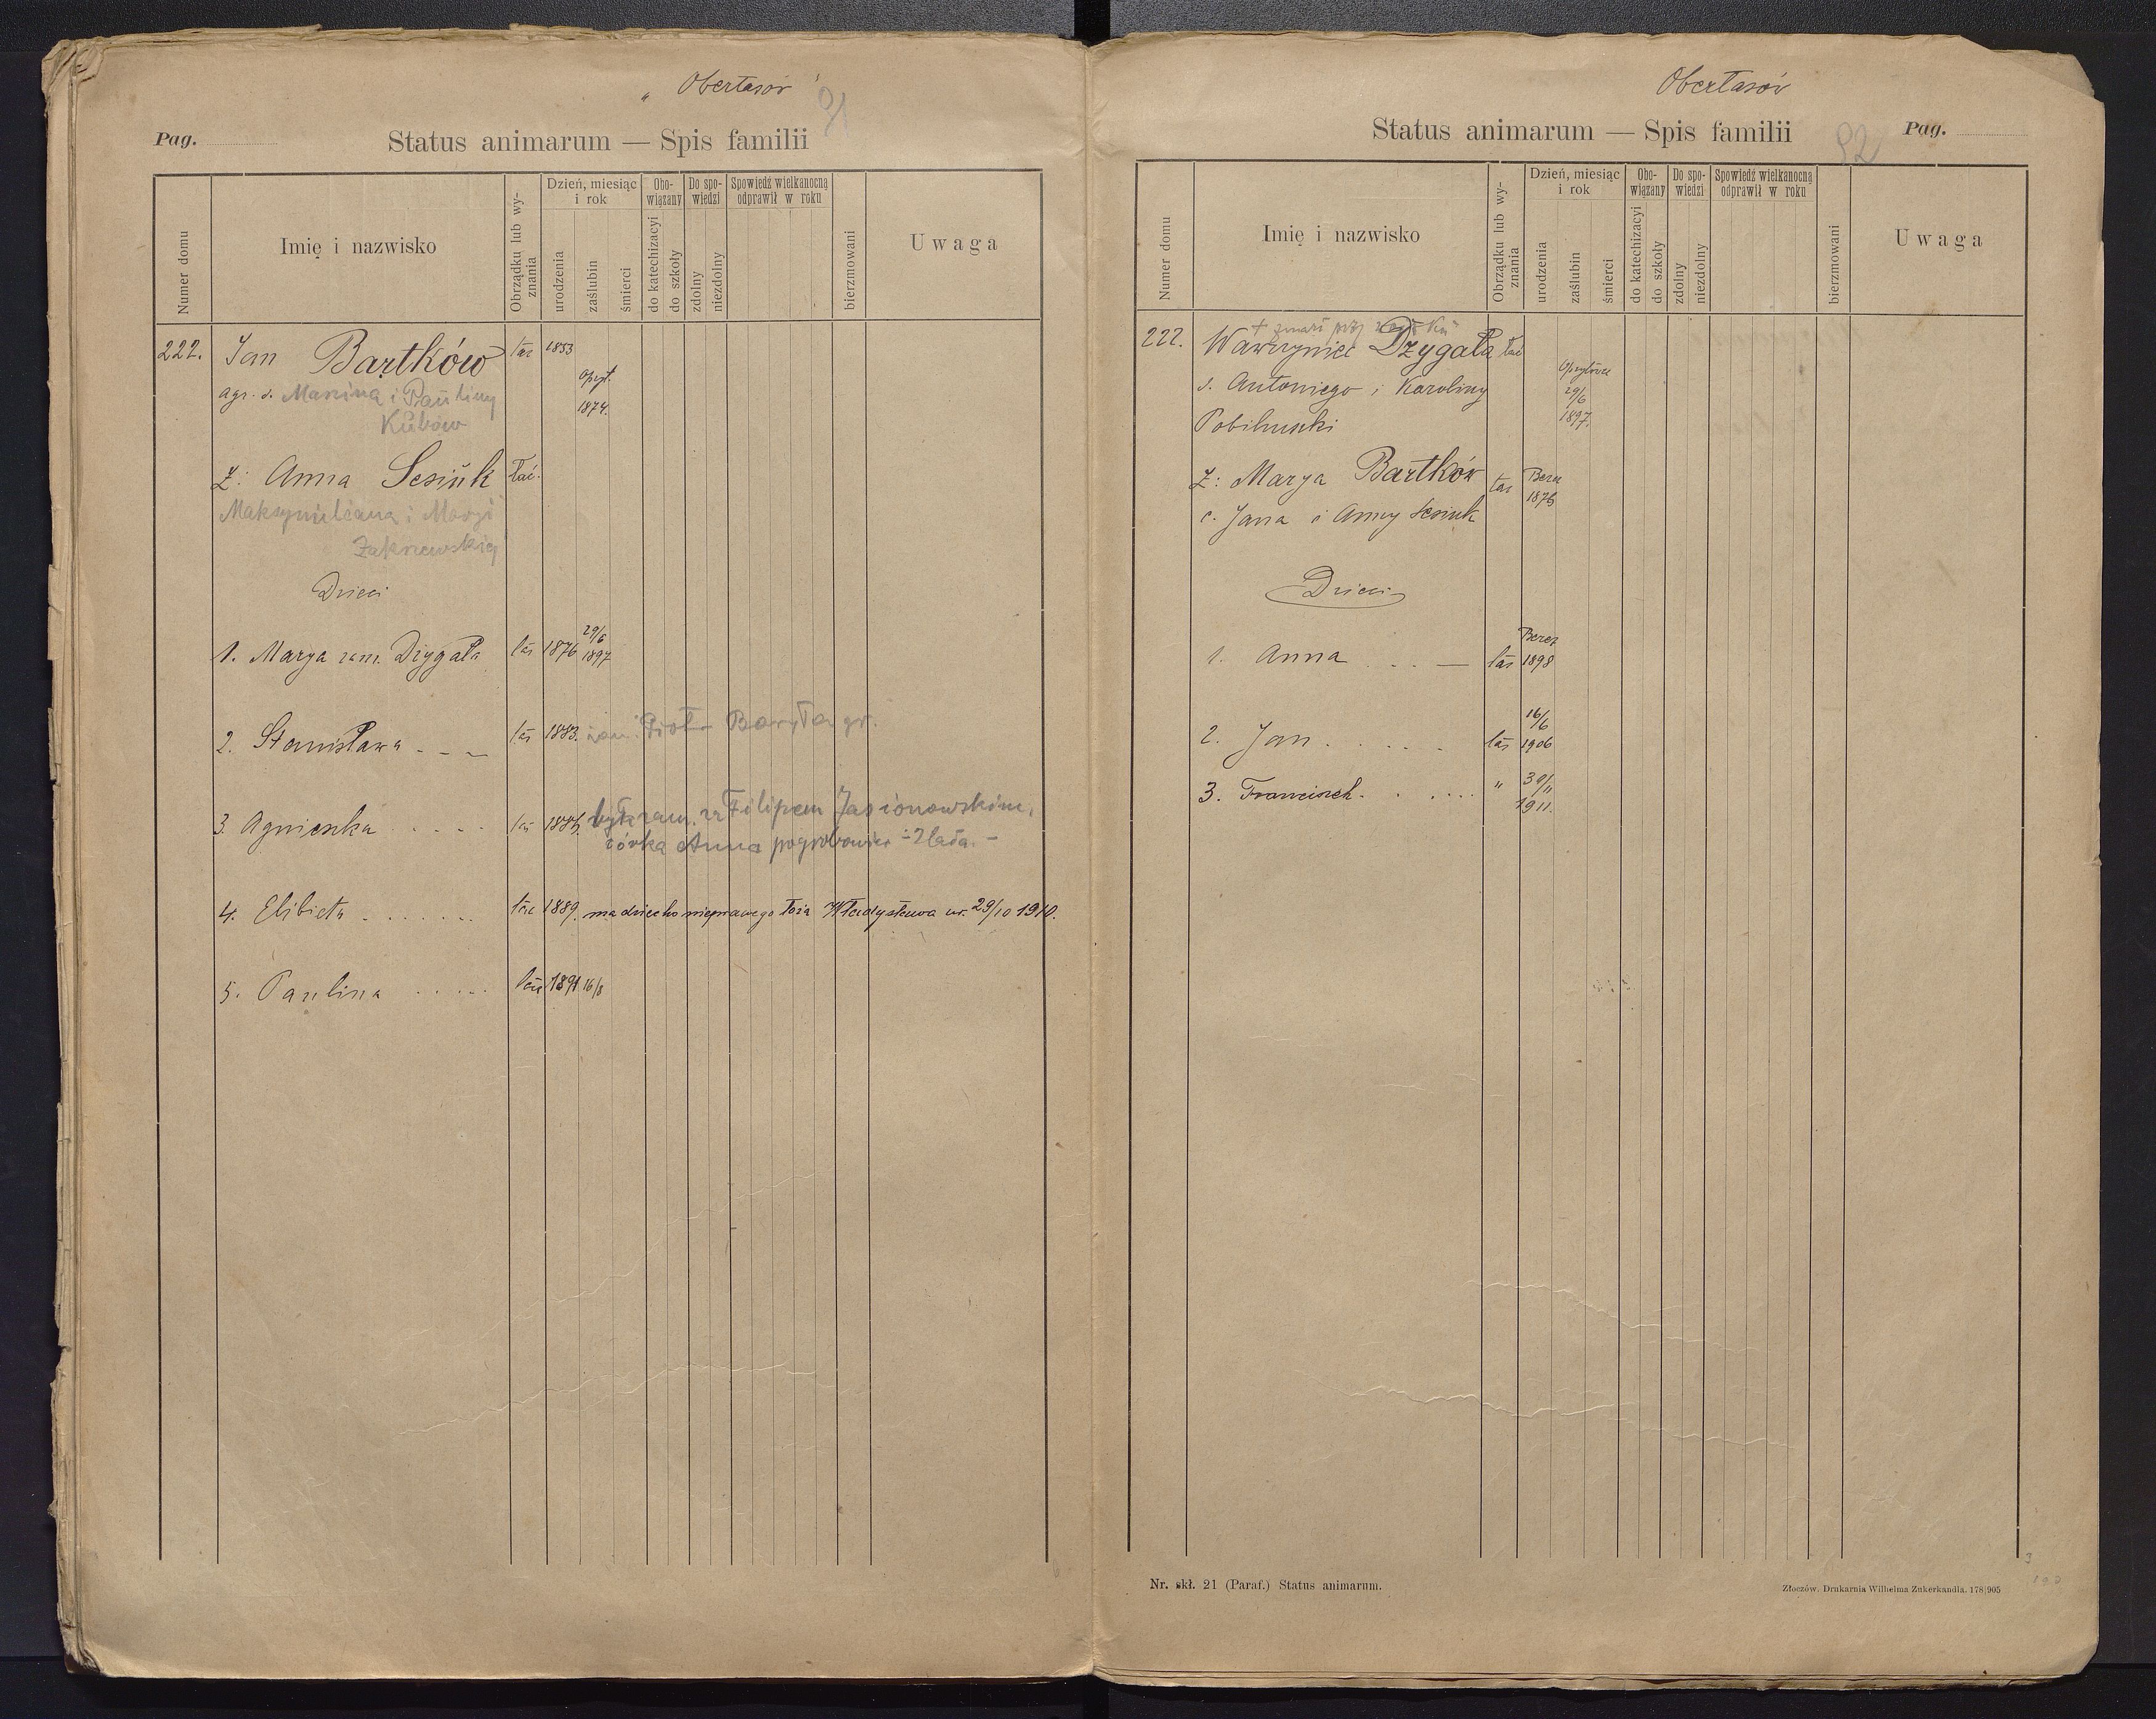 " Obertasów
91
Pag.
Status animarum — Spis familii
Numer domu
Imię i nazwisko
Obrządku lub wy-
znania
Dzień, miesiąc
i rok
urodzenia
zaślubin
śmierci
Obo-
wiązany
do katechizacyi
do szkoły
Do spo-
wiedzi
zdolny
niezdolny
Spowiedź wielkanocną
odprawił w roku
bierzmowani
Uwaga
222. Jan Bartków łac 1853
opryt.
1874.
agr. s. Marcina i Pauliny
Kubów
Ż: Anna Sesiuk łać.
Maksymiliana i Maryi
Zakrzewskiej
Dzieci
29/6
1. Marya zam. Dzygała łać 1876 1897
2. Stanisława - - - łać 1883. zam. Piotr Baryła gr.
3. Agnieszka . . . . łać była zam. za Filipem Jasionowskim,
córka Anna pogrobowiec - 2 lata. -
4. Elżbieta . . . . . . łac 1889. ma dziecko nieprawego łoża Władysława ur. 29/10 1910.
5. Paulina . . . . . łać 1891 16/8
Obertasów
92
Status animarum — Spis familii
Pag.
Numer domu
Imię i nazwisko
Obrządku lub wy-
znania
Dzień, miesiąc
i rok
urodzenia
zaślubin
śmierci
Obo-
wiązany
do katechizacyi
do szkoły
Do spo-
wiedzi
zdolny
niezdolny
Spowiedź wielkanocną
odprawił w roku
bierzmowani
Uwaga
+ zmarł przy
222. Wawrzyniec Dzygała łać
s. Antoniego i Karoliny
29/6
1897.
Pobihuski
Ż: Marya Bartków łac Berez
1876
c. Jana i Anny Sesiuk
Dzieci
Berez
1. Anna . . . — łać 1898
16/6
2. Jan . . . . . łać 1906
3. Franciszek . . . . . " 30/11
1911.
Nr. skł. 21 (Paraf.) Status animarum.
Złoczów. Drukarnia Wilhelma Zukerkandla. 178|905